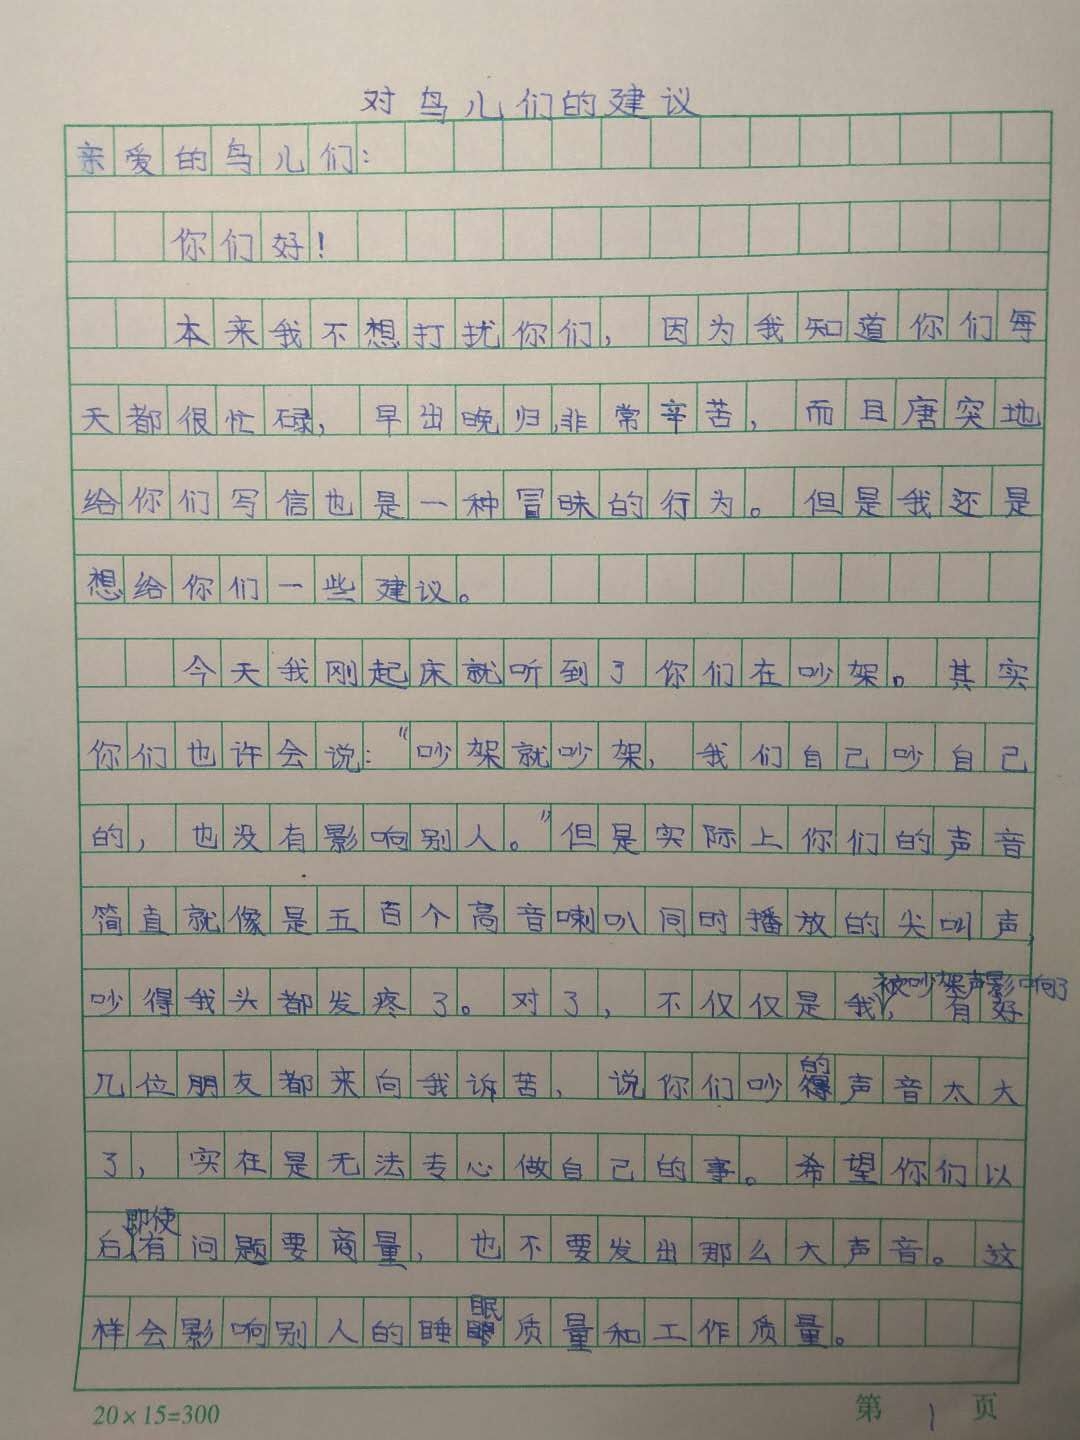 对鸟儿们的建议
亲爱的鸟儿们：
你们好！
本来我不想打扰你们，因为我知道你们每
天都很忙碌，早出晚归，非常辛苦，而且唐突地
给你们写信也是一种冒昧的行为。但是我还是
想给你们一些建议。
今天我刚起床就听到了你们在吵架。其实
你们也许会说：“吵架就吵架，我们自己吵自己
的，也没有影响别人。”但是实际上你们的声音
简直就像是五百个高音喇叭同时播放的尖叫声，
吵得我头都发疼了。对了，不仅仅是我被吵架声影响了，有好
几位朋友都来向我诉苦，说你们吵的声音太大
了，实在是无法专心做自己的事。希望你们以
后即使有问题要商量，也不要发出那么大声音。这
样会影响别人的睡眠质量和工作质量。
20×15=300
第 1 页